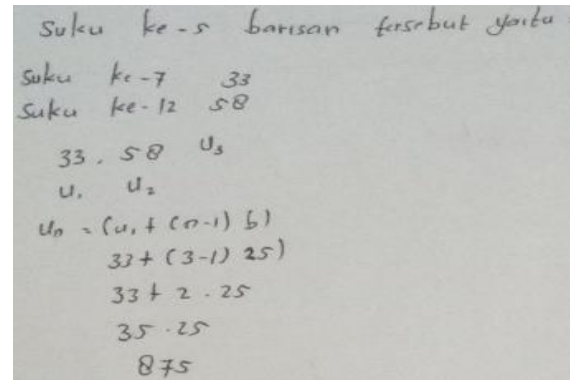 Suku ke-5 barisan tersebut yaitu
Suku ke-7 33
Suku ke-12 58
33, 58 U₃
U₁ U₂
Uₙ = (U₁ + (n-1) b)
33 + (3-1) 25)
33 + 2 . 25
35 . 25
875